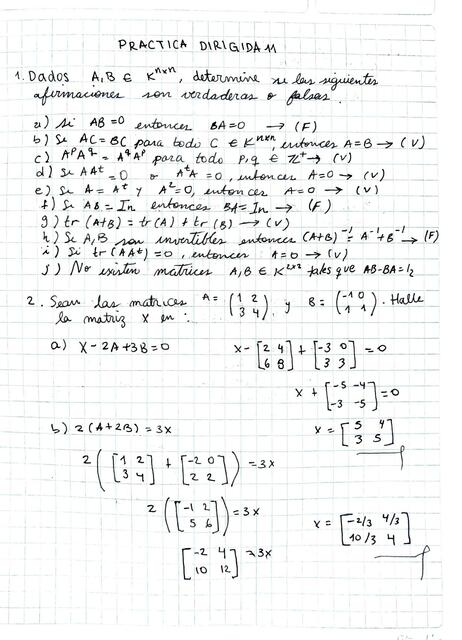 PRACTICA DIRIGIDA 11
1. Dados A, B ∈ K^{n×n}, determine si las siguientes
afirmaciones son verdaderas o falsas.
a) Si AB=0 entonces BA=0 → (F)
b) Si AC=BC para todo C ∈ K^{n×n}, entonces A=B → (V)
c) A^p A^q = A^q A^p para todo p, q ∈ Z^+ → (V)
d) Si AA^t = 0 o A^t A = 0, entonces A=0 → (V)
e) Si A = A^t y A^2=0, entonces A=0 → (V)
f) Si AB = In entonces BA=In → (F)
g) tr (A+B) = tr(A) + tr(B) → (V)
h) Si A, B son invertibles entonces (A+B)^{-1} = A^{-1}+B^{-1} → (F)
i) Si tr(AA^t) = 0, entonces A=0 → (V)
j) No existen matrices A, B ∈ K^{2×2} tales que AB-BA=I2
2. Sean las matrices A = (1 2; 3 4) y B = (-1 0; 1 1). Halle
la matriz X en:
a) X-2A+3B=0
X-[2 4; 6 8] + [-3 0; 3 3] = 0
X + [-5 -4; -3 -5] = 0
X = [5 4; 3 5]
b) 2(A+2B) = 3X
2([1 2; 3 4] + [-2 0; 2 2]) = 3X
2([-1 2; 5 6]) = 3X
[-2 4; 10 12] = 3X
X = [-2/3 4/3; 10/3 4]